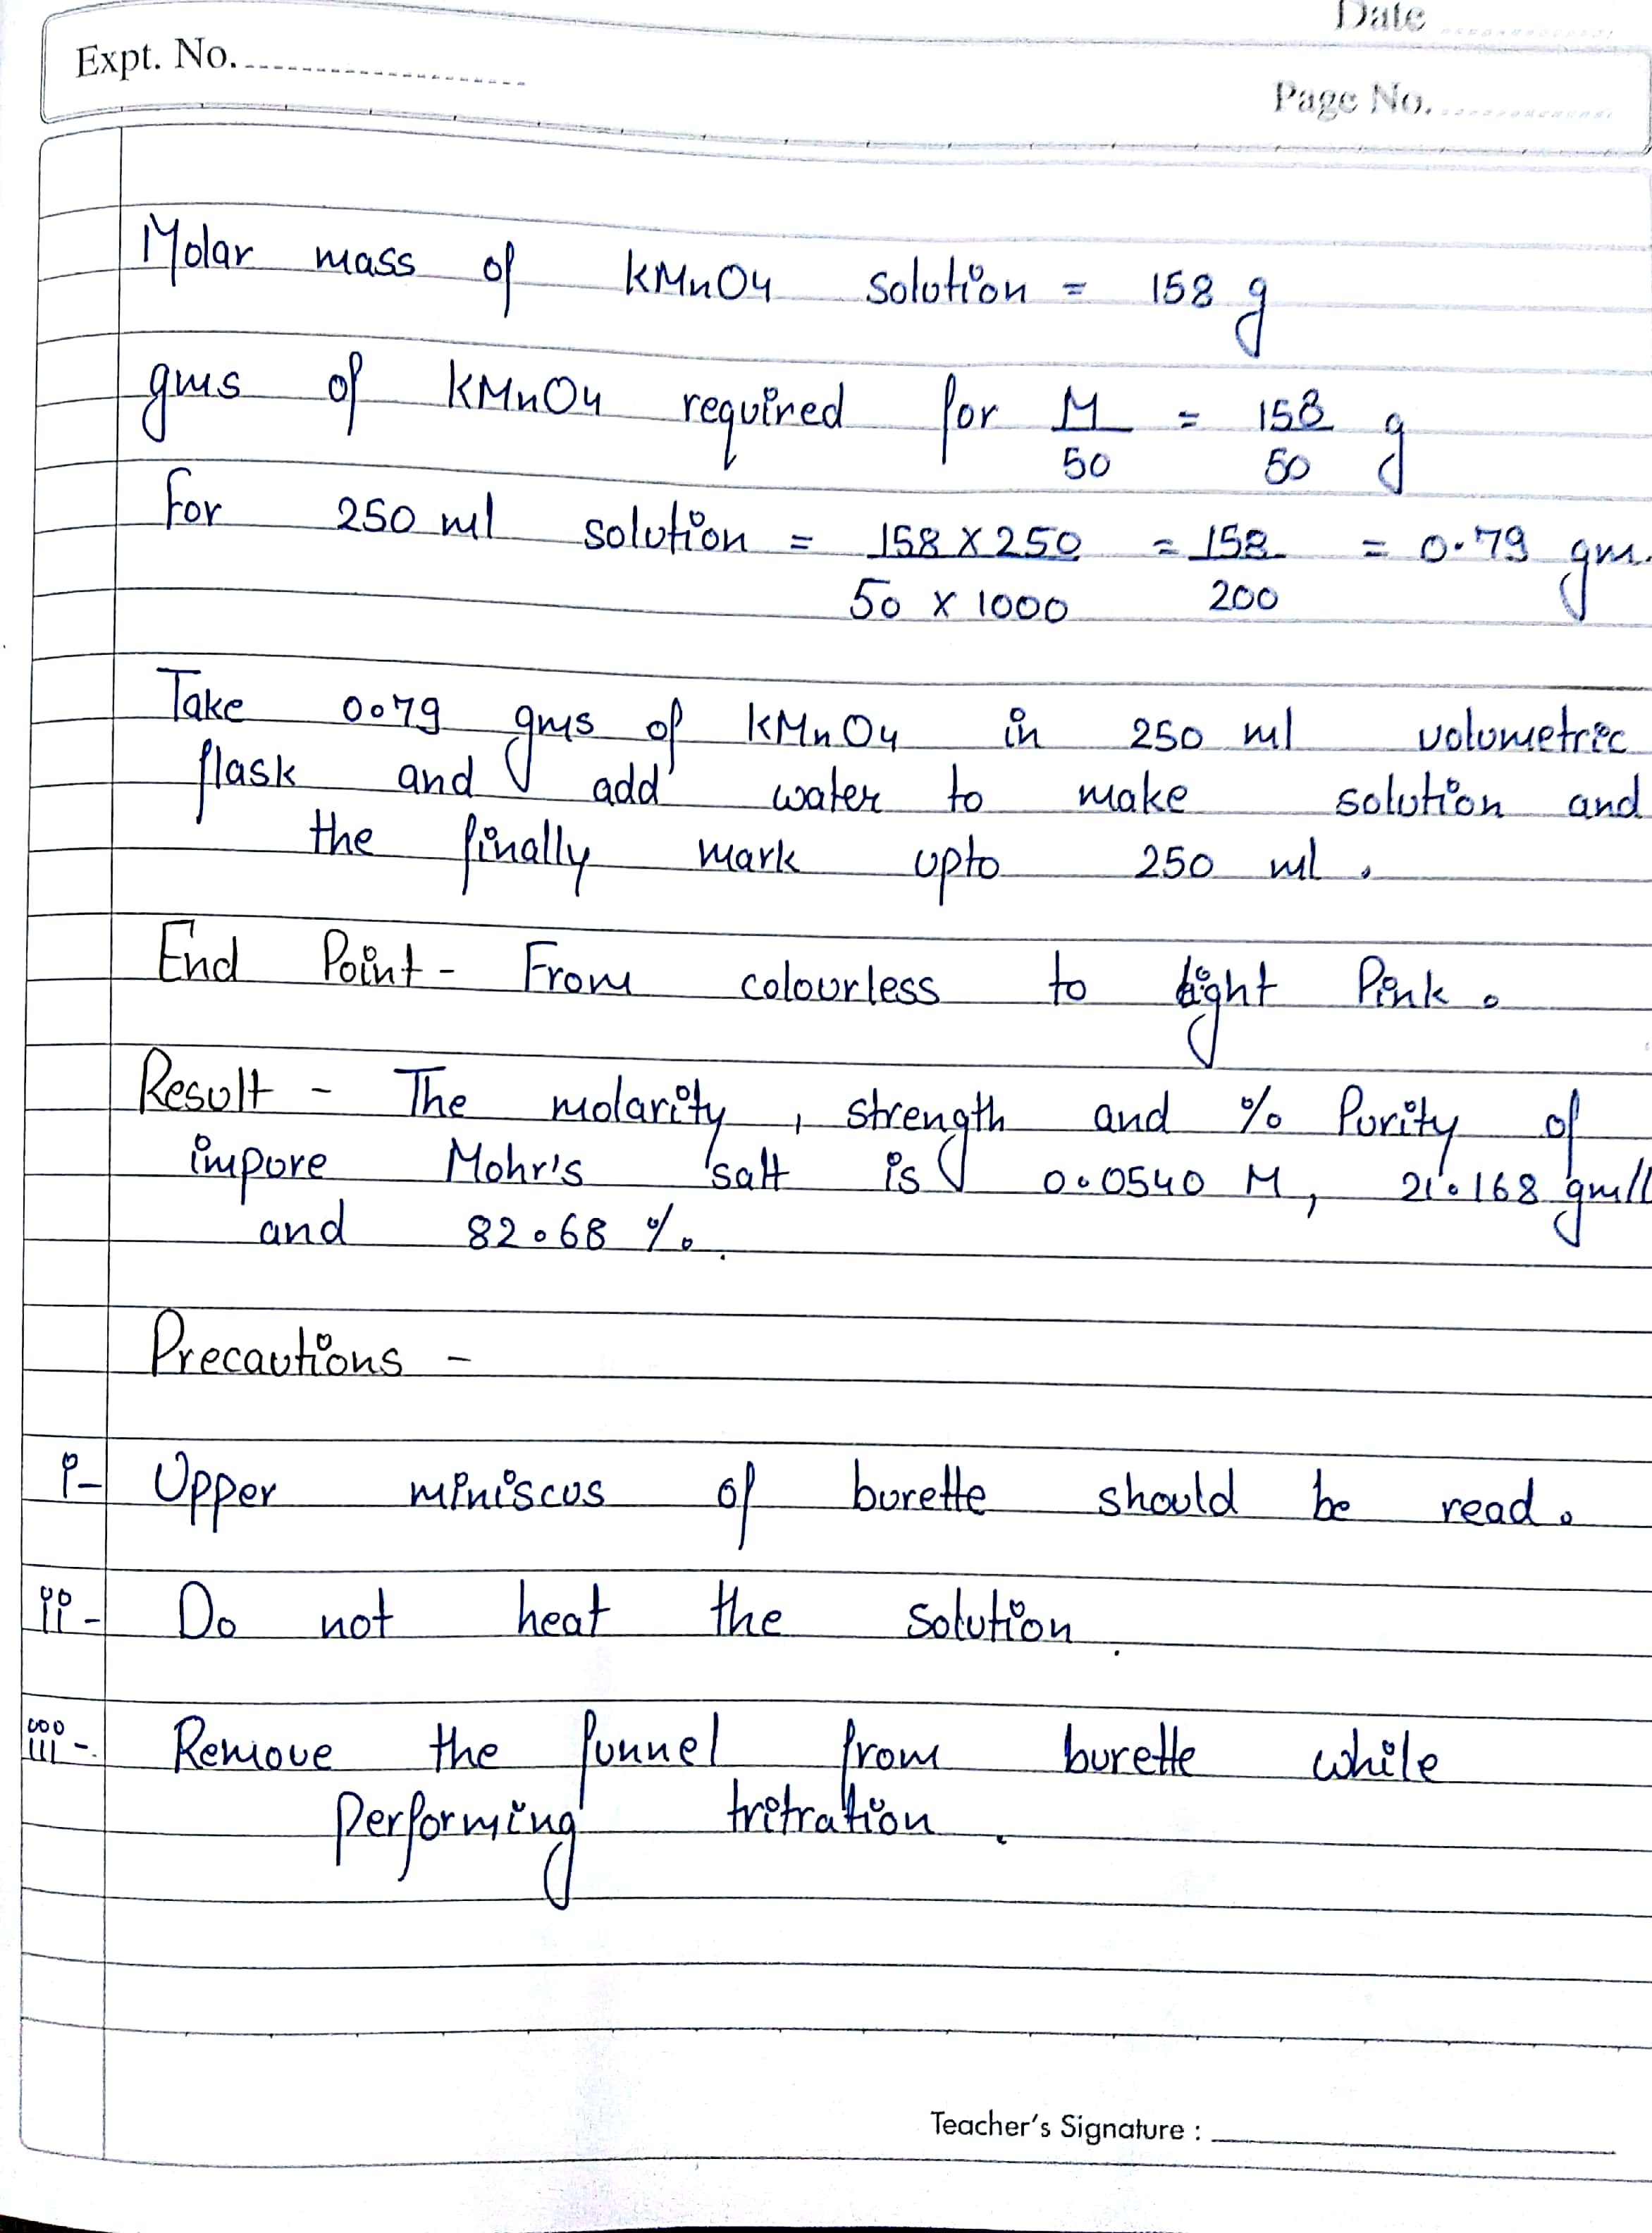 Date
Expt. No.
Page No.
Molar mass of KMnO4 solution = 158 g
gms of KMnO4 required for M/50 = 158/50 g
For 250 ml solution = 158 X 250 / 50 X 1000 = 158/200 = 0.79 gm.
Take 0.79 gms of KMnO4 in 250 ml volumetric
flask and add water to make solution and
the finally mark upto 250 ml.
End Point - From colourless to light Pink.
Result - The molarity, strength and % Purity of
impure Mohr's salt is 0.0540 M, 21.168 gm/l
and 82.68 %.
Precautions -
i- Upper miniscus of burette should be read.
ii- Do not heat the solution.
iii- Remove the funnel from burette while
performing tritration.
Teacher's Signature :